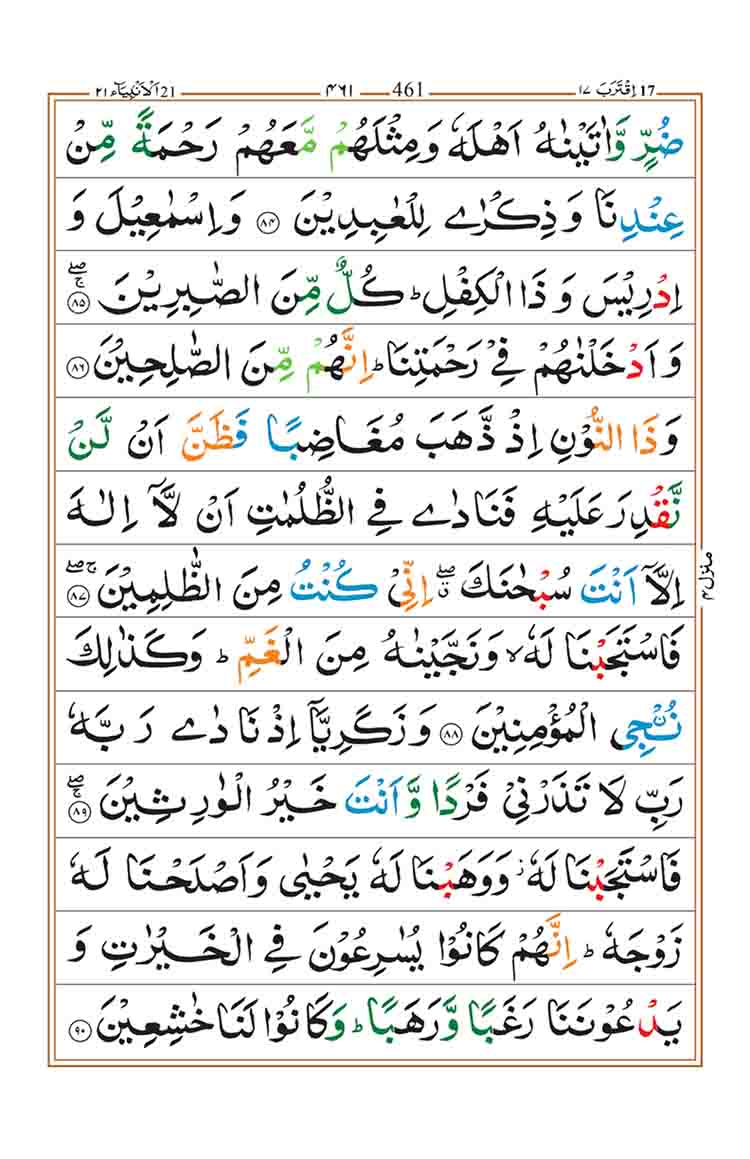 اِقْتَرَبَ ١٧ 17 461 ٤٦١ اَلْاَنْۢبِيَآء ٢١ 21
ضُرٍّ وَّاٰتَيْنٰهُ اَهْلَهٗ وَمِثْلَهُمْ مَّعَهُمْ رَحْمَةً مِّنْ
عِنْدِنَا وَذِكْرٰى لِلْعٰبِدِيْنَ ۝٨٤ وَاِسْمٰعِيْلَ وَ
اِدْرِيْسَ وَذَا الْكِفْلِ ؕ كُلٌّ مِّنَ الصّٰبِرِيْنَ ۝٨٥ صلے ج
وَاَدْخَلْنٰهُمْ فِيْ رَحْمَتِنَا ؕ اِنَّهُمْ مِّنَ الصّٰلِحِيْنَ ۝٨٦
وَذَا النُّوْنِ اِذْ ذَّهَبَ مُغَاضِبًا فَظَنَّ اَنْ لَّنْ
نَّقْدِرَ عَلَيْهِ فَنَادٰى فِي الظُّلُمٰتِ اَنْ لَّاۤ اِلٰهَ
اِلَّاۤ اَنْتَ سُبْحٰنَكَ ۖ اِنِّيْ كُنْتُ مِنَ الظّٰلِمِيْنَ ۝٨٧ صلے ج
فَاسْتَجَبْنَا لَهٗ ۙ وَنَجَّيْنٰهُ مِنَ الْغَمِّ ؕ وَكَذٰلِكَ
نُـنْۨجِي الْمُؤْمِنِيْنَ ۝٨٨ وَزَكَرِيَّاۤ اِذْ نَادٰى رَبَّهٗ
رَبِّ لَا تَذَرْنِيْ فَرْدًا وَّاَنْتَ خَيْرُ الْوٰرِثِيْنَ ۝٨٩ صلے ج
فَاسْتَجَبْنَا لَهٗ ؗ وَوَهَبْنَا لَهٗ يَحْيٰى وَاَصْلَحْنَا لَهٗ
زَوْجَهٗ ؕ اِنَّهُمْ كَانُوْا يُسٰرِعُوْنَ فِي الْخَيْرٰتِ وَ
يَدْعُوْنَنَا رَغَبًا وَّرَهَبًا ؕ وَكَانُوْا لَنَا خٰشِعِيْنَ ۝٩٠
منزل ٤